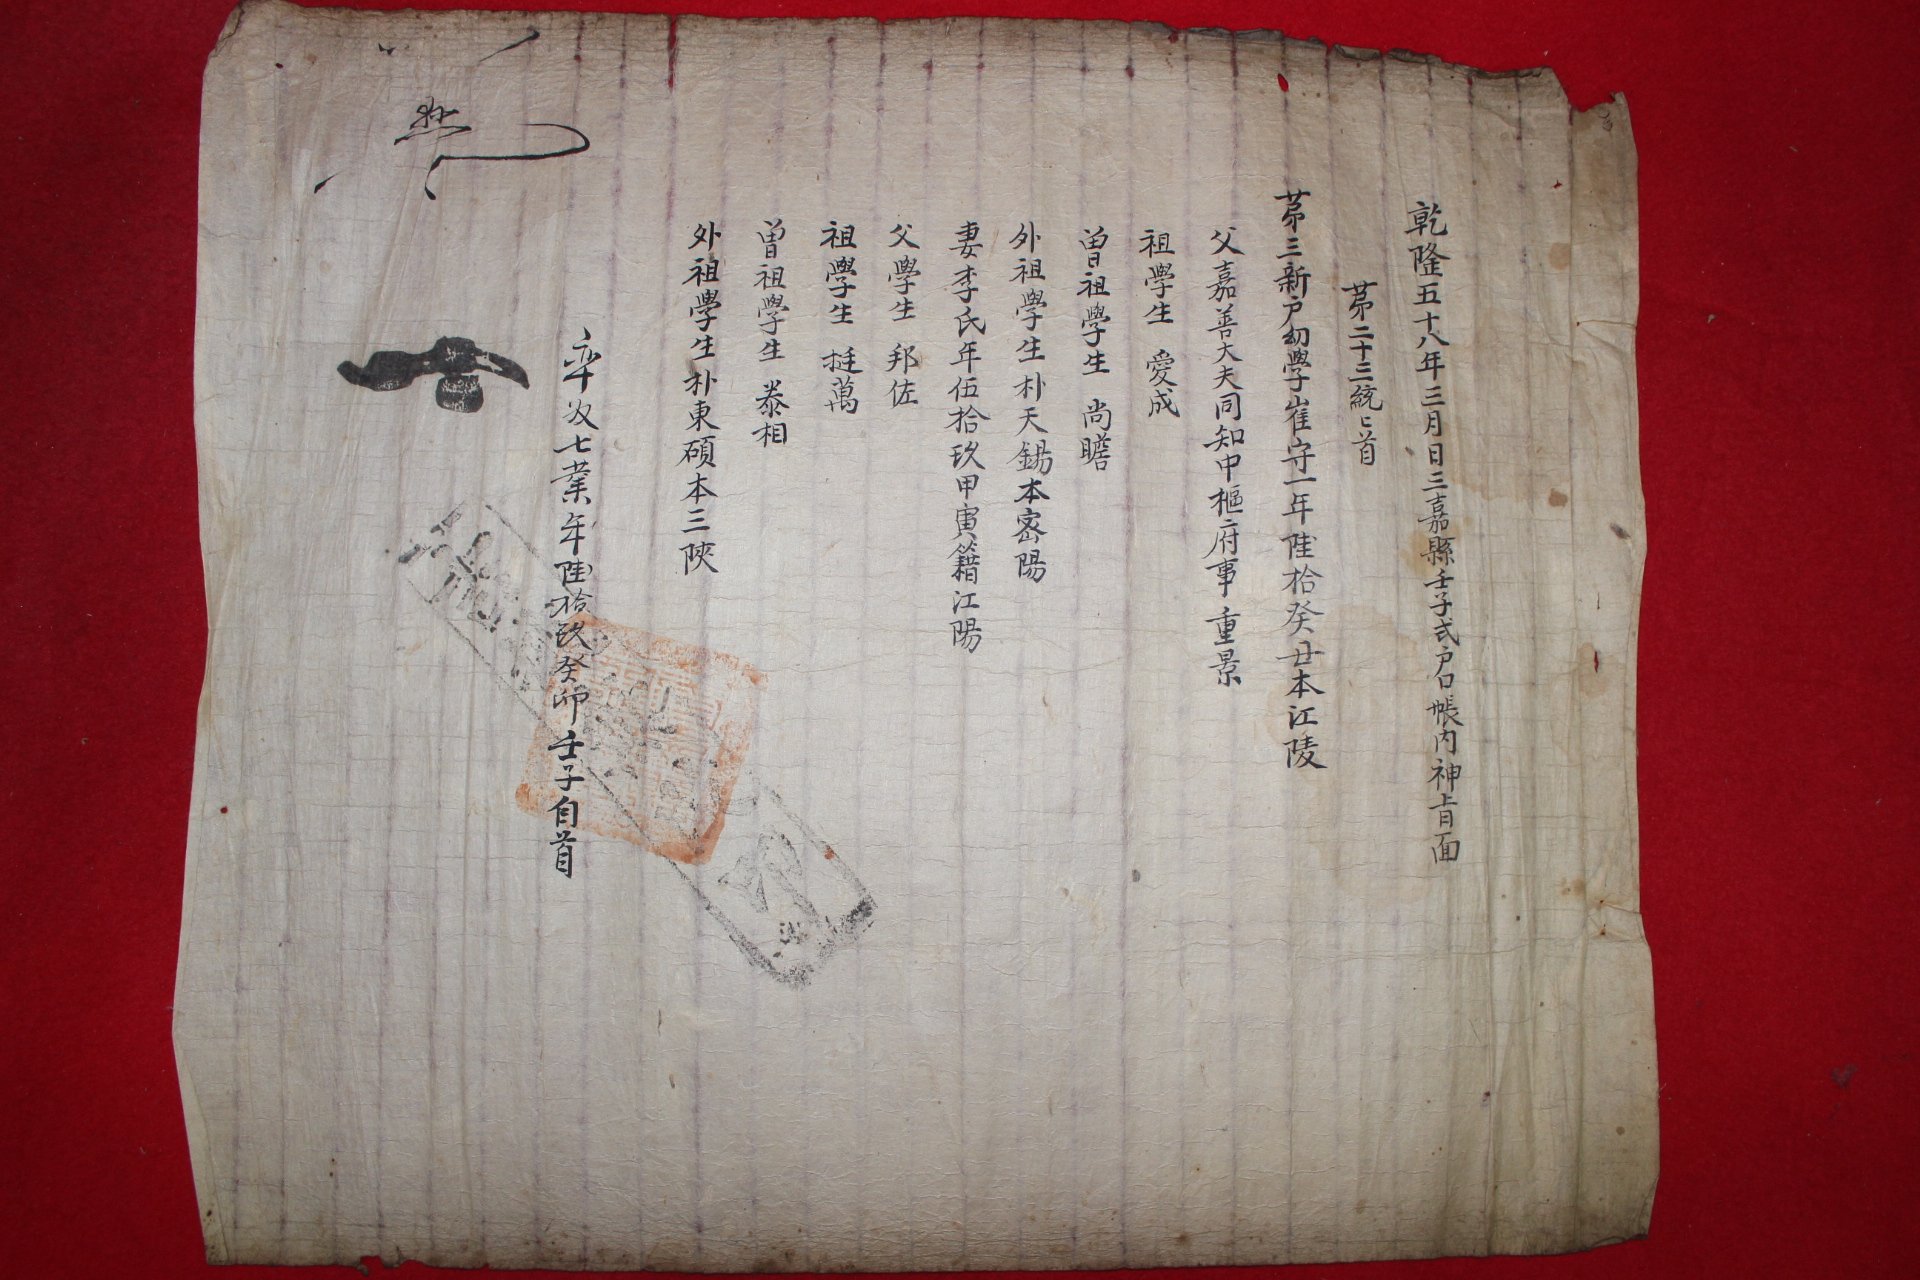 乾隆五十八年三月日三嘉縣壬子式户口帳内神旨面
苐二十三統〻首
苐三新户幼學崔守一年陸拾癸丑本江陵
父嘉善大夫同知中樞府事重景
祖學生 愛成
曾祖學生 尚瞻
外祖學生朴天錫本密陽
妻李氏年伍拾玖甲寅籍江陽
父學生 邦佐
祖學生 挺萬
曾祖學生 泰相
外祖學生朴東碩本三陝
率奴七業年陸拾玖癸卯壬子自首